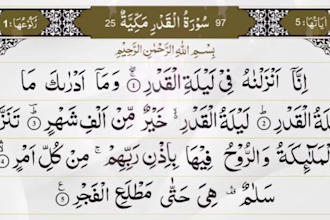 اٰیَاتُهَا: 5 97 سُوْرَةُ الْقَدْرِ مَكِّيَّةٌ 25 رُكُوْعُهَا: 1
بِسْمِ اللّٰهِ الرَّحْمٰنِ الرَّحِيْمِ
اِنَّاۤ اَنْزَلْنٰهُ فِیْ لَیْلَةِ الْقَدْرِ ۝۱ وَمَاۤ اَدْرٰىكَ مَا
لَیْلَةُ الْقَدْرِ ۝۲ لَیْلَةُ الْقَدْرِ ۙ خَیْرٌ مِّنْ اَلْفِ شَهْرٍ ۝۳ تَنَزَّلُ
الْمَلٰٓىِٕكَةُ وَالرُّوْحُ فِیْهَا بِاِذْنِ رَبِّهِمْ ۚ مِنْ كُلِّ اَمْرٍ ۝۴
سَلٰمٌ ۛ هِیَ حَتّٰی مَطْلَعِ الْفَجْرِ ۝۵